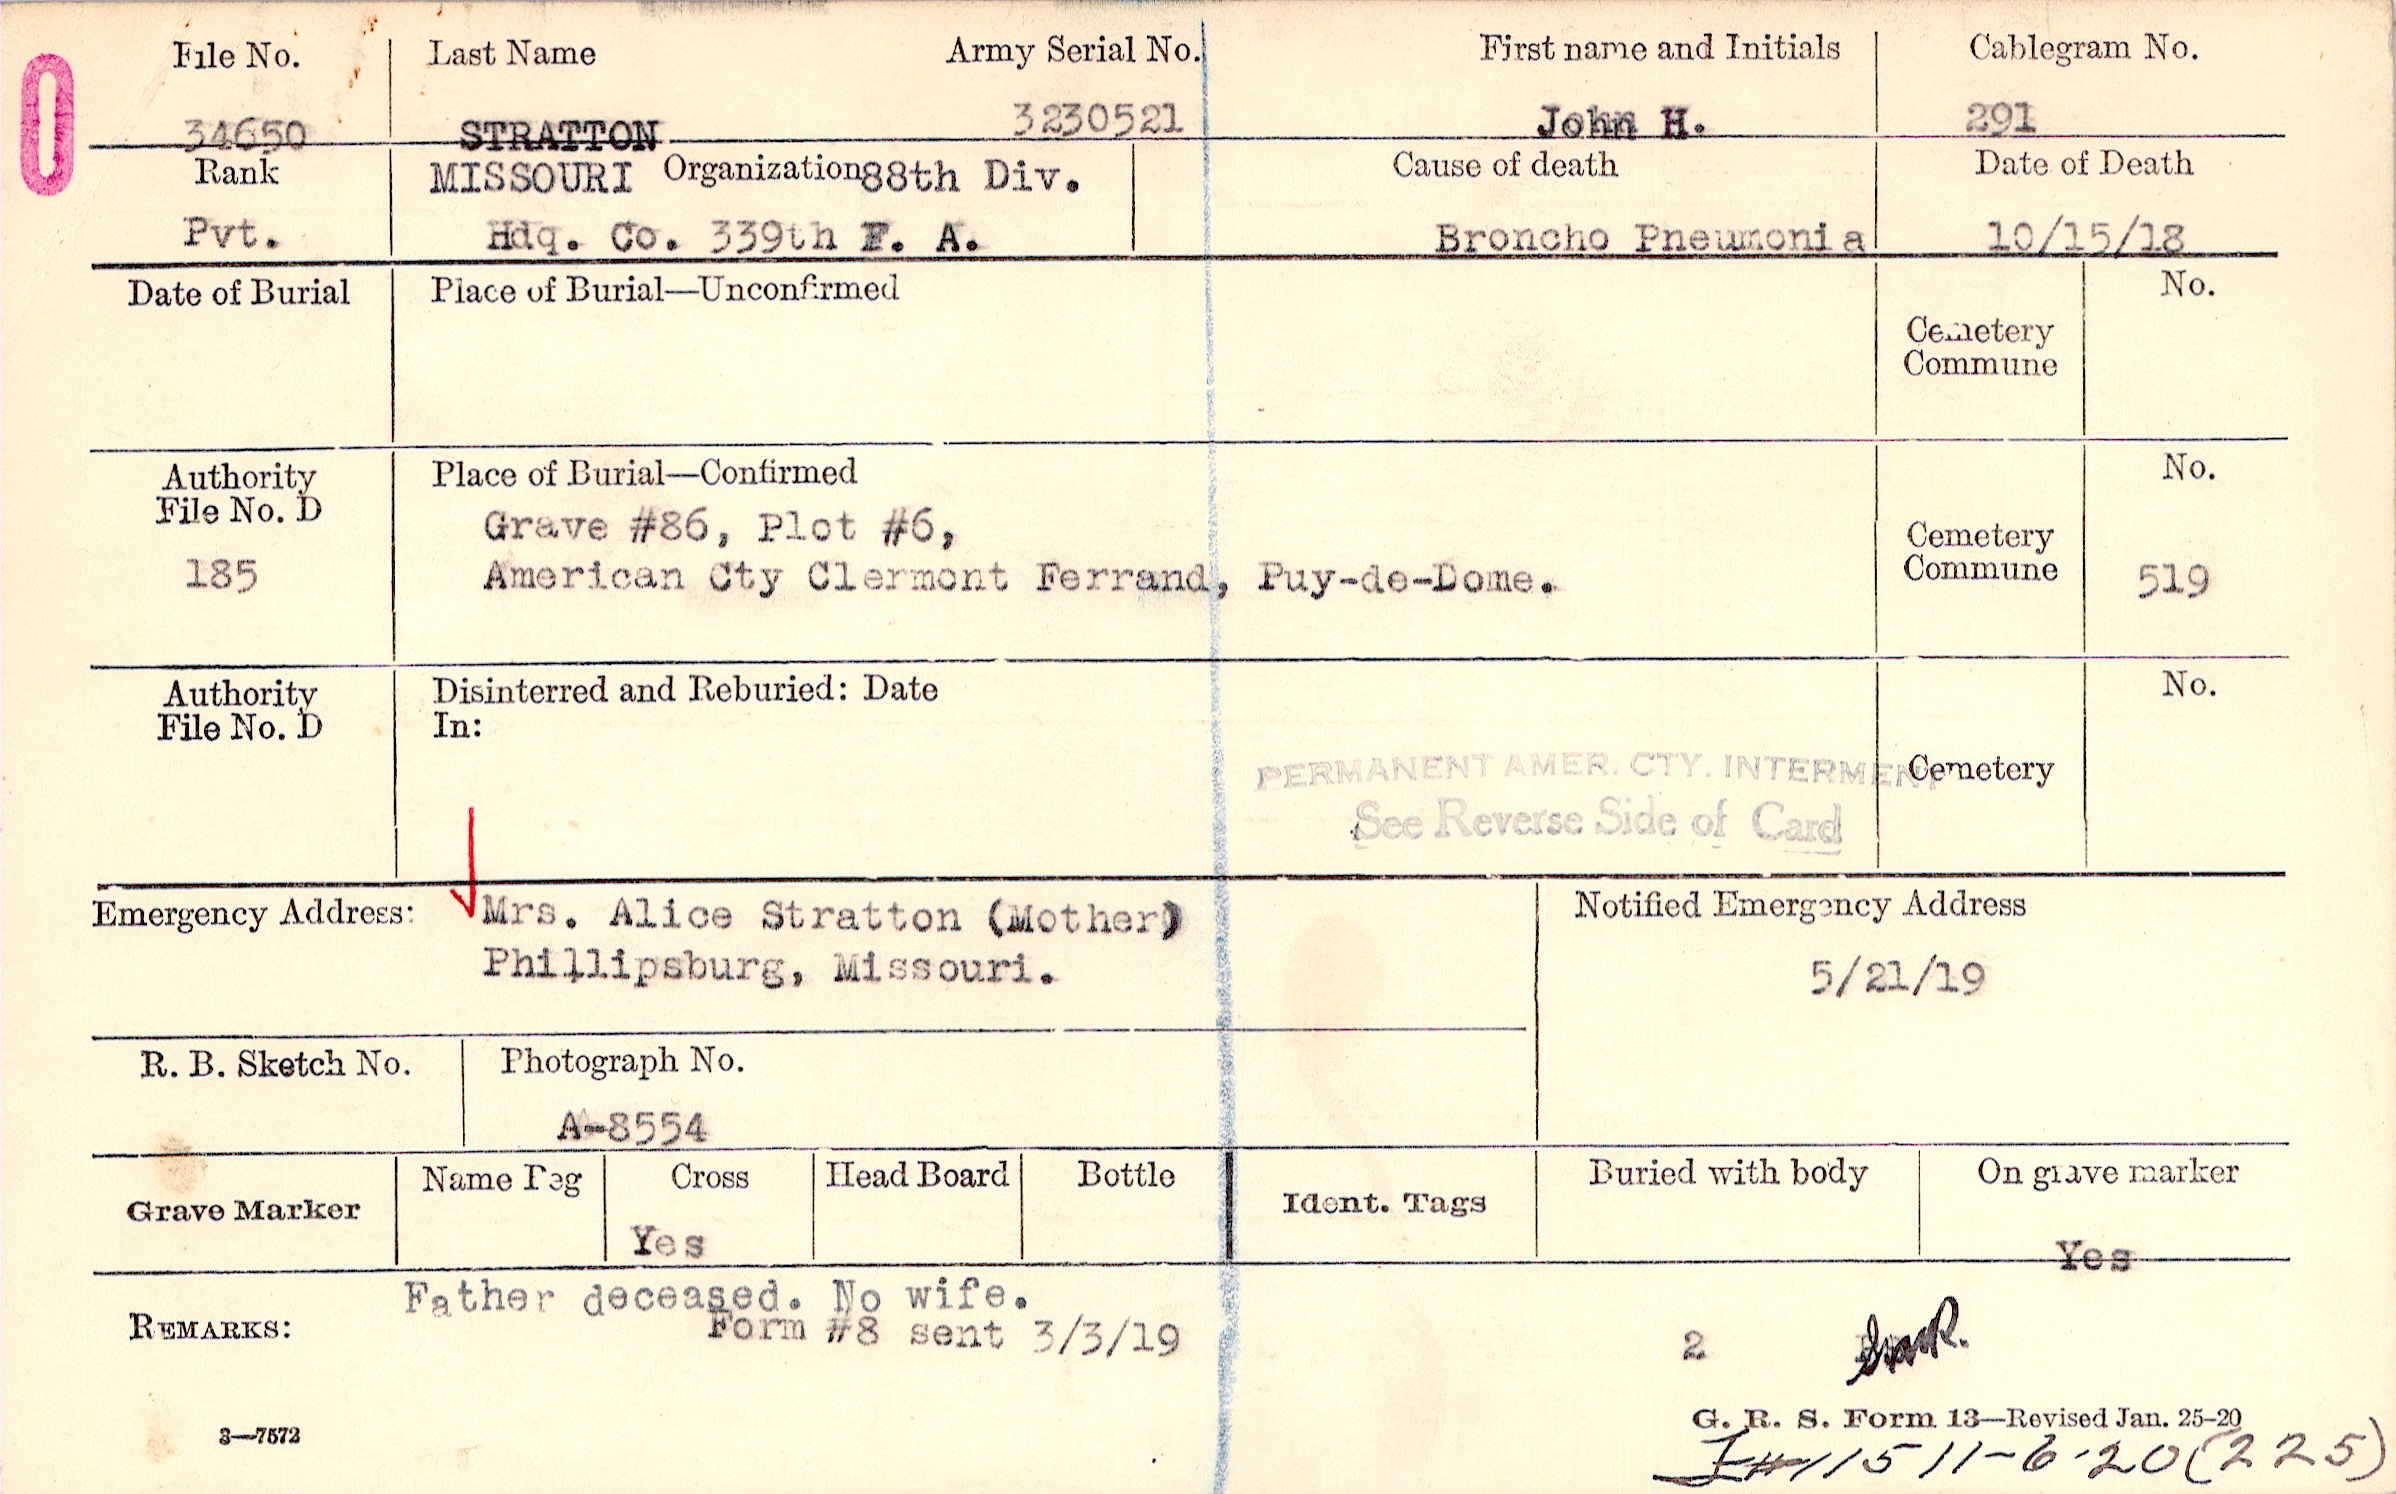 File No. Last Name Army Serial No. First name and Initials Cablegram No.
34650 STRATTON 3230521 John H. 291
Rank MISSOURI Organization 88th Div. Cause of death Date of Death
Pvt. Hdq. Co. 339th F. A. Broncho Pneumonia 10/15/18
Date of Burial Place of Burial—Unconfirmed No.
Cemetery
Commune
Authority Place of Burial—Confirmed No.
File No. D
Grave #86, Plot #6,
Cemetery
185 American Cty Clermont Ferrand, Puy-de-Dome. Commune 519
Authority Disinterred and Reburied: Date No.
File No. D In:
PERMANENT AMER. CTY. INTERMENT Cemetery
See Reverse Side of Card
Emergency Address: Mrs. Alice Stratton (Mother) Notified Emergency Address
Phillipsburg, Missouri. 5/21/19
R. B. Sketch No. Photograph No.
A-8554
Grave Marker Name Peg Cross Head Board Bottle Ident. Tags Buried with body On grave marker
Yes Yes
Father deceased. No wife.
REMARKS: Form #8 sent 3/3/19 2
3—7572 G. R. S. Form 13—Revised Jan. 25-20
11-6-20 (225)